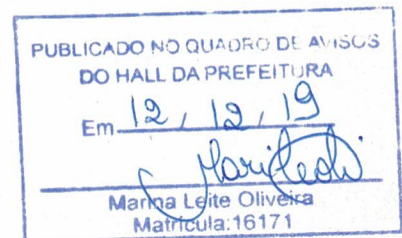 PUBLICADO NO QUADRO DE AVISOS
DO HALL DA PREFEITURA
Em 12 / 12 / 19
Marina Leite Oliveira
Matrícula:16171